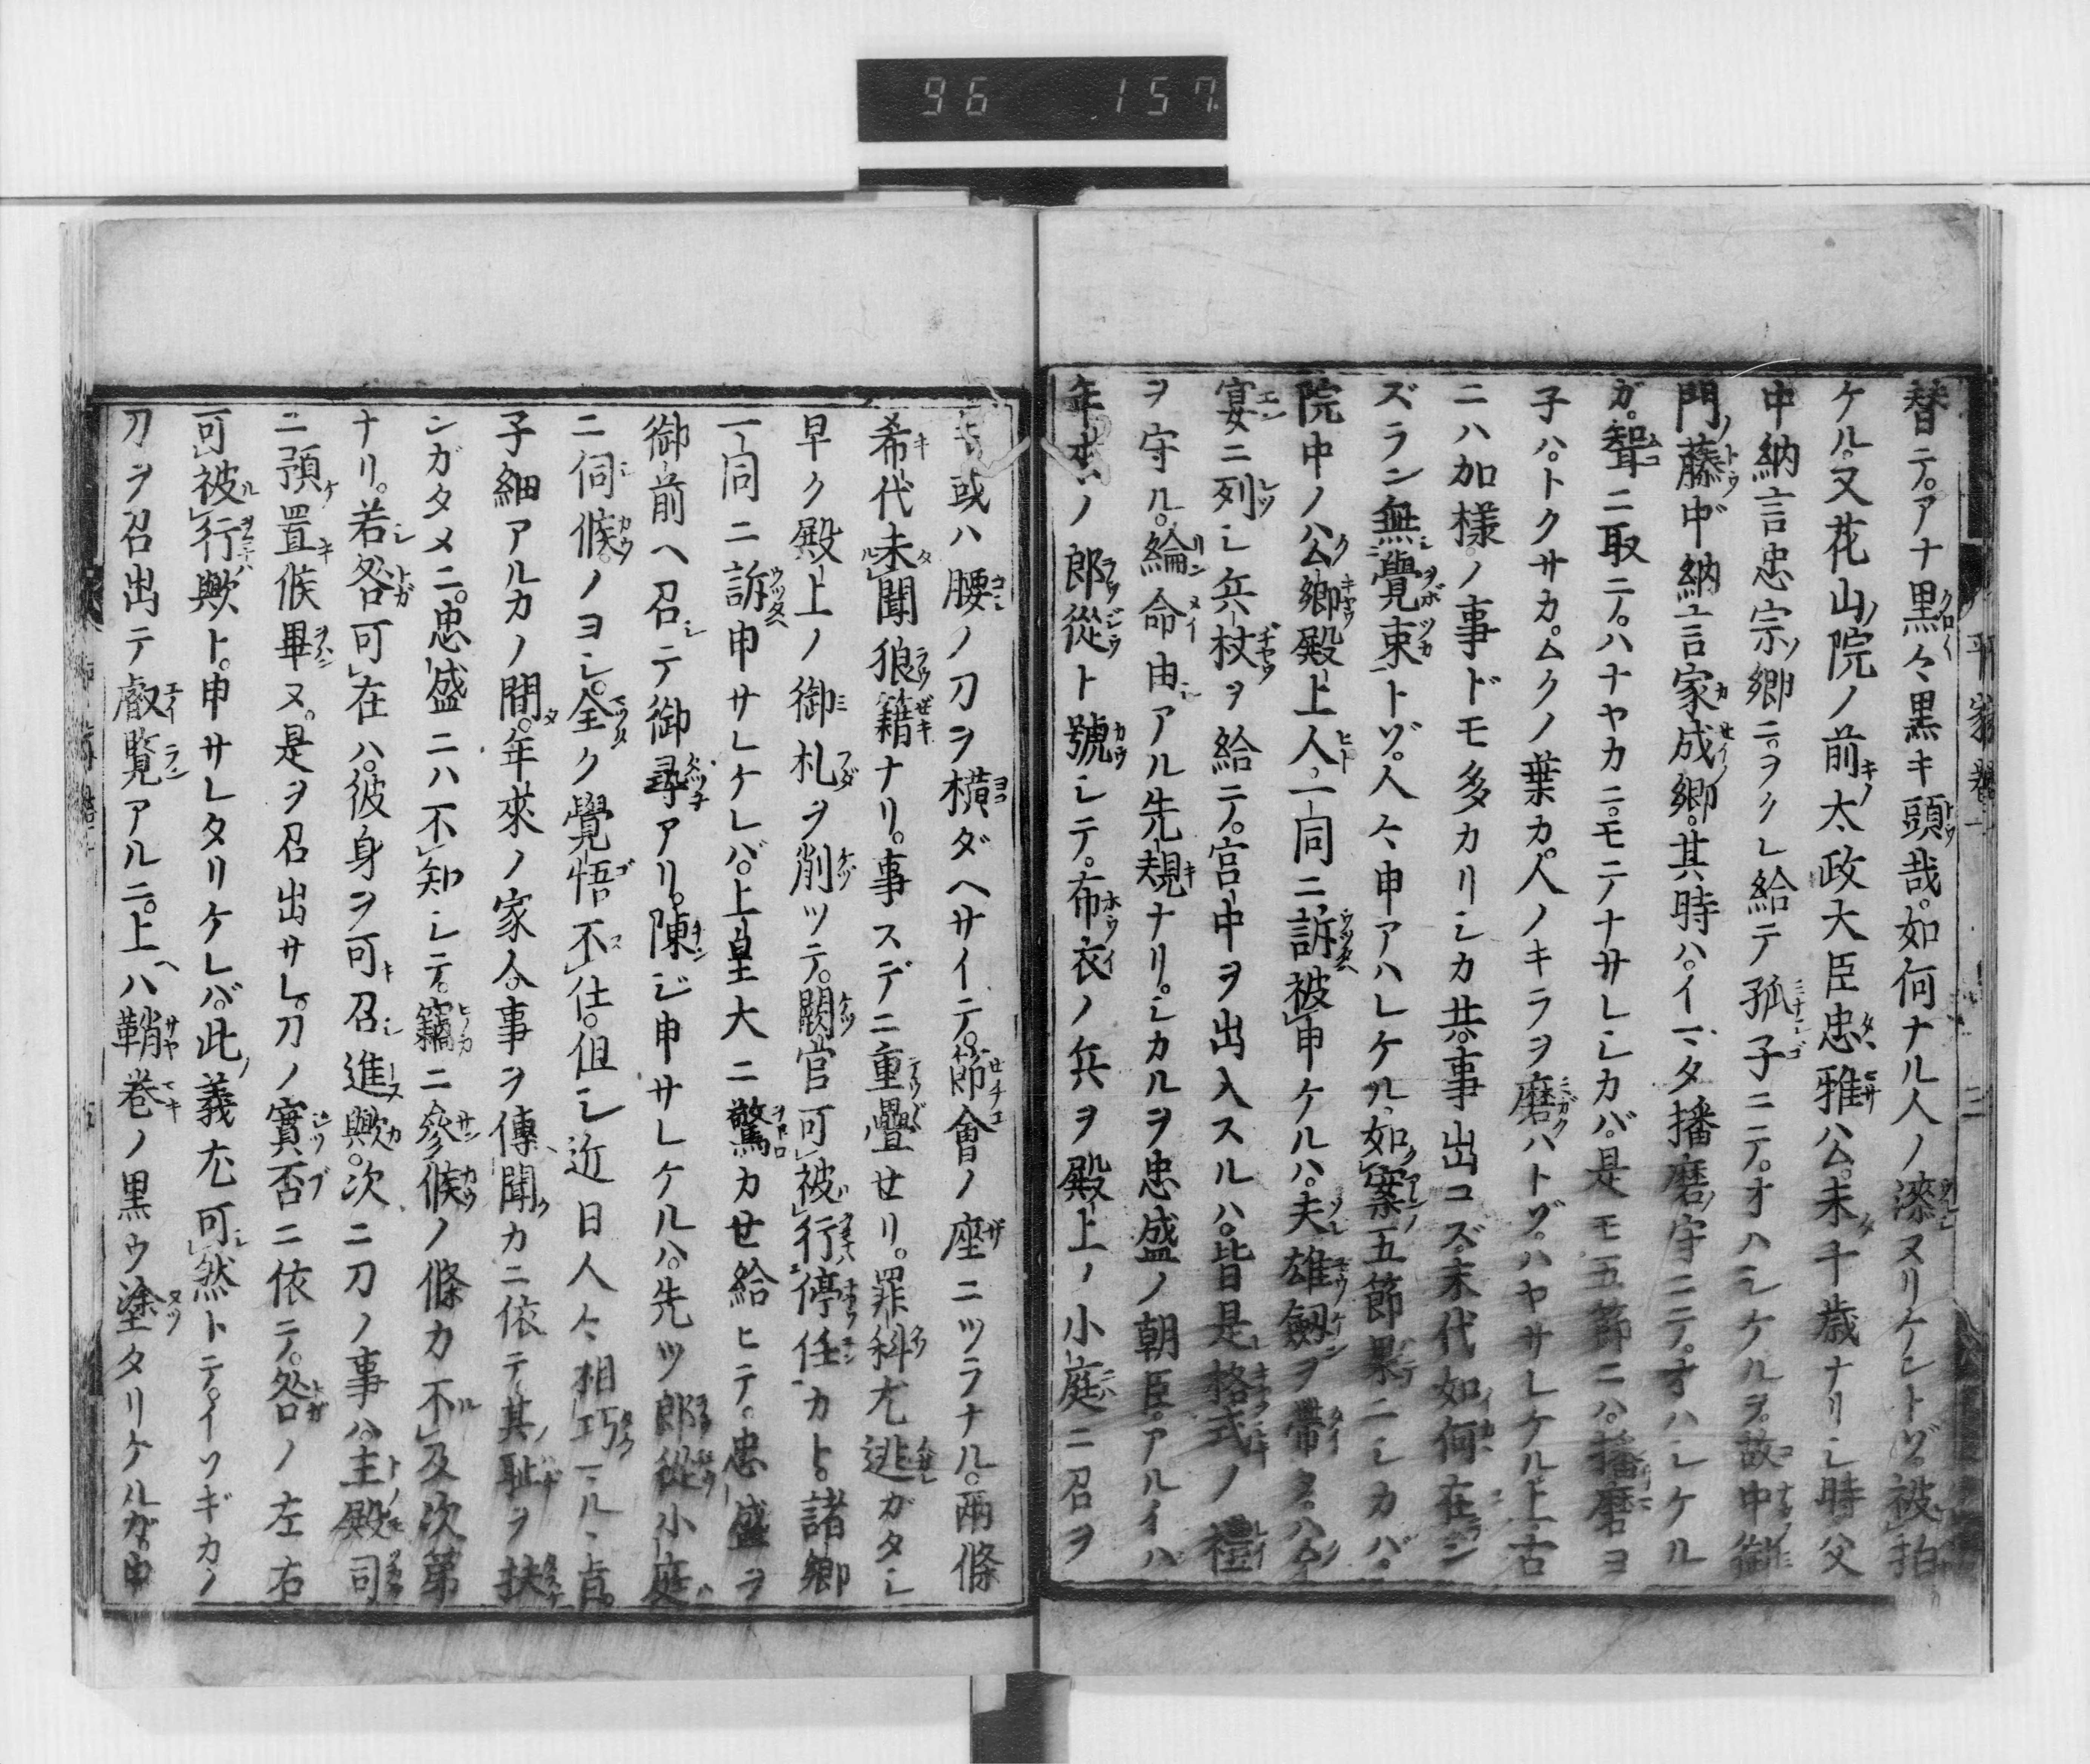 96 157
替テ。アナ黒々黒キ頭哉。如何ナル人ノ漆ヌリケントゾ。被拍
ケル。又花山院ノ前太政大臣忠雅公。未十歳ナリシ時父
中納言忠宗卿ニヲクレ給テ孤子ニテ。オハシケルヲ。故中御
門藤中納言家成卿。其時ハ。イマタ播磨守ニテ。オハシケル
ガ。聟ニ取テ。ハナヤカニ。モテナサレシカバ。是モ五節ニハ。播磨ヨ
子ハ。トクサカ。ムクノ葉カ。人ノキラヲ磨ハトゾ。ハヤサレケル上古
ニハ加様ノ事ドモ多カリシカ共。事出コズ。末代如何在ン
ズラン無覺束トゾ。人々申アハレケル。如案五節果ニシカバ。
院中ノ公卿殿上人。一同ニ訴被申ケルハ。夫雄劔ヲ帶シテ
宴ニ列シ兵杖ヲ給テ。宮中ヲ出入スルハ。皆是格式ノ禮
ヲ守ル。綸命由アル先規ナリ。シカルヲ忠盛ノ朝臣。アルイハ
年來ノ郎從ト號シテ。布衣ノ兵ヲ殿上ノ小庭ニ召ヲ
キ或ハ腰ノ刀ヲ横ダヘサイテ。節會ノ座ニツラナル。兩條
希代未聞狼籍ナリ。事スデニ重疊セリ。罪科尤逃ガタシ
早ク殿上ノ御札ヲ削ツテ。闕官可被行停任カト。諸卿
一同ニ訴申サレケレバ。上皇大ニ驚カセ給ヒテ。忠盛ヲ
御前ヘ召テ御尋アリ。陳ジ申サレケルハ。先ツ郎從小庭
ニ伺候ノヨシ。全ク覺悟不仕。但シ近日人々相巧マルヽ旨。
子細アルカノ間。年來ノ家人。事ヲ傳聞カニ依テ其耻ヲ扶
ンガタメニ。忠盛ニハ不知シテ。竊ニ參候ノ條カ不及次第
ナリ。若咎可在ハ。彼身ヲ可召進歟。次ニ刀ノ事ハ。主殿司
ニ預置候畢ヌ。是ヲ召出サレ。刀ノ實否ニ依テ。咎ノ左右
可被行歟ト。申サレタリケレバ。此義尤可然トテ。イソギカノ
刀ヲ召出テ叡覽アルニ。上ハ鞘巻ノ黒ウ塗タリケルガ。中
平家卷一
三